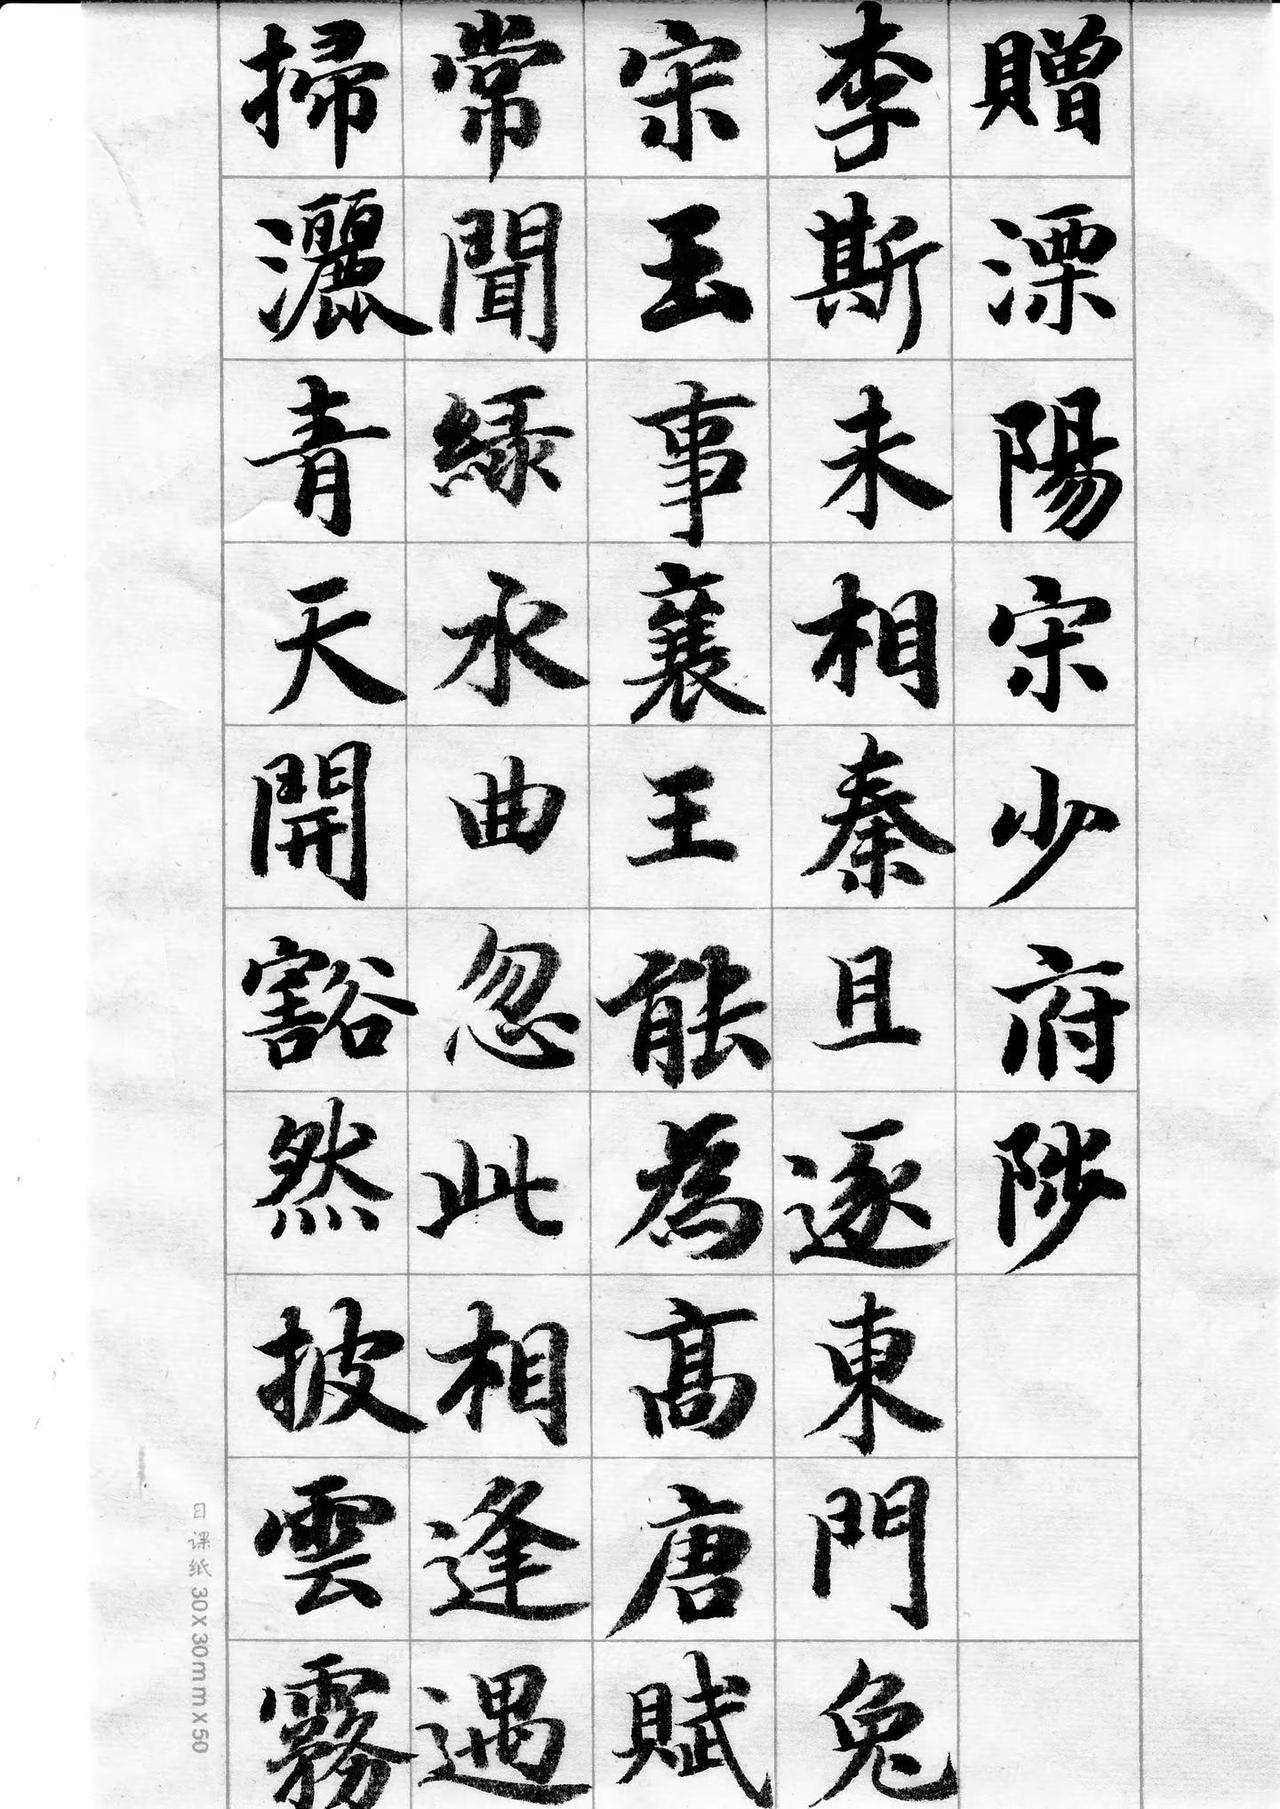 贈溧陽宋少府陟
李斯未相秦且逐東門兔
宋玉事襄王能為高唐賦
常聞綠水曲忽此相逢遇
掃灑青天開豁然披雲霧
日课纸 30x30mmx50